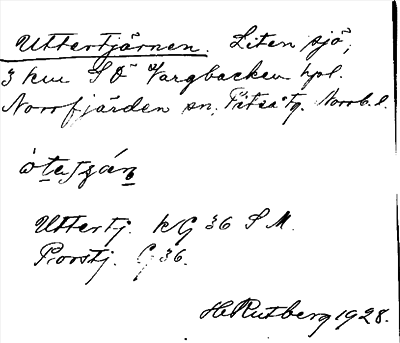 Uttertjärnen. Liten sjö,
3 km SÖ Vargbacken hpl.
Norrfjärden sn, Piteå tg. Norrb. l.
Uttertj. KG 36 S M.
Poostj. G 36.
H Rutberg 1928.